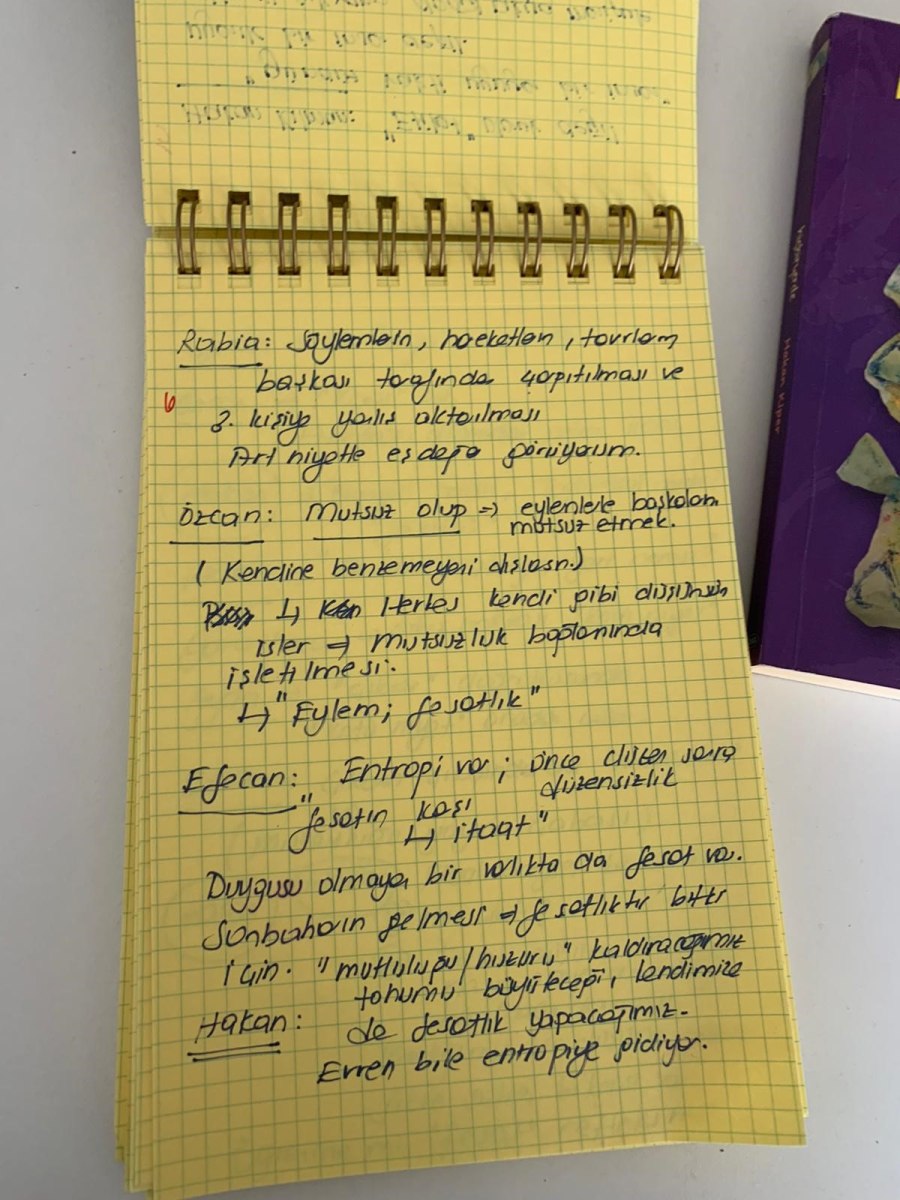 Rabia: Söylemlerin, hareketlerin, tavırların
başkası tarafında çarpıtılması ve
3. kişiye yanlış aktarılması
Art niyetle eş değer görüyorum.
6
Özcan: Mutsuz olup => eylemlerle başkalarını
mutsuz etmek.
( Kendine benzemeyeni dışlasın.)
↳ Herkes kendi gibi düşünsün
ister => mutsuzluk bağlamında
işletilmesi.
↳ "Eylem; fesatlık"
Efecan: Entropi var; önce düzen sonra
düzensizlik
"fesatın karşı
↳ itaat"
Duygusu olmayan bir varlıkta da fesat var.
Sonbaharın gelmesi => fesatlıktır bitki
için. "mutluluğu/huzuru" kaldıracağımız
tohumu büyüteceği, kendimize
Hakan: de fesatlık yapacağımız.
Evren bile entropiye gidiyor.
Hakan Kiper